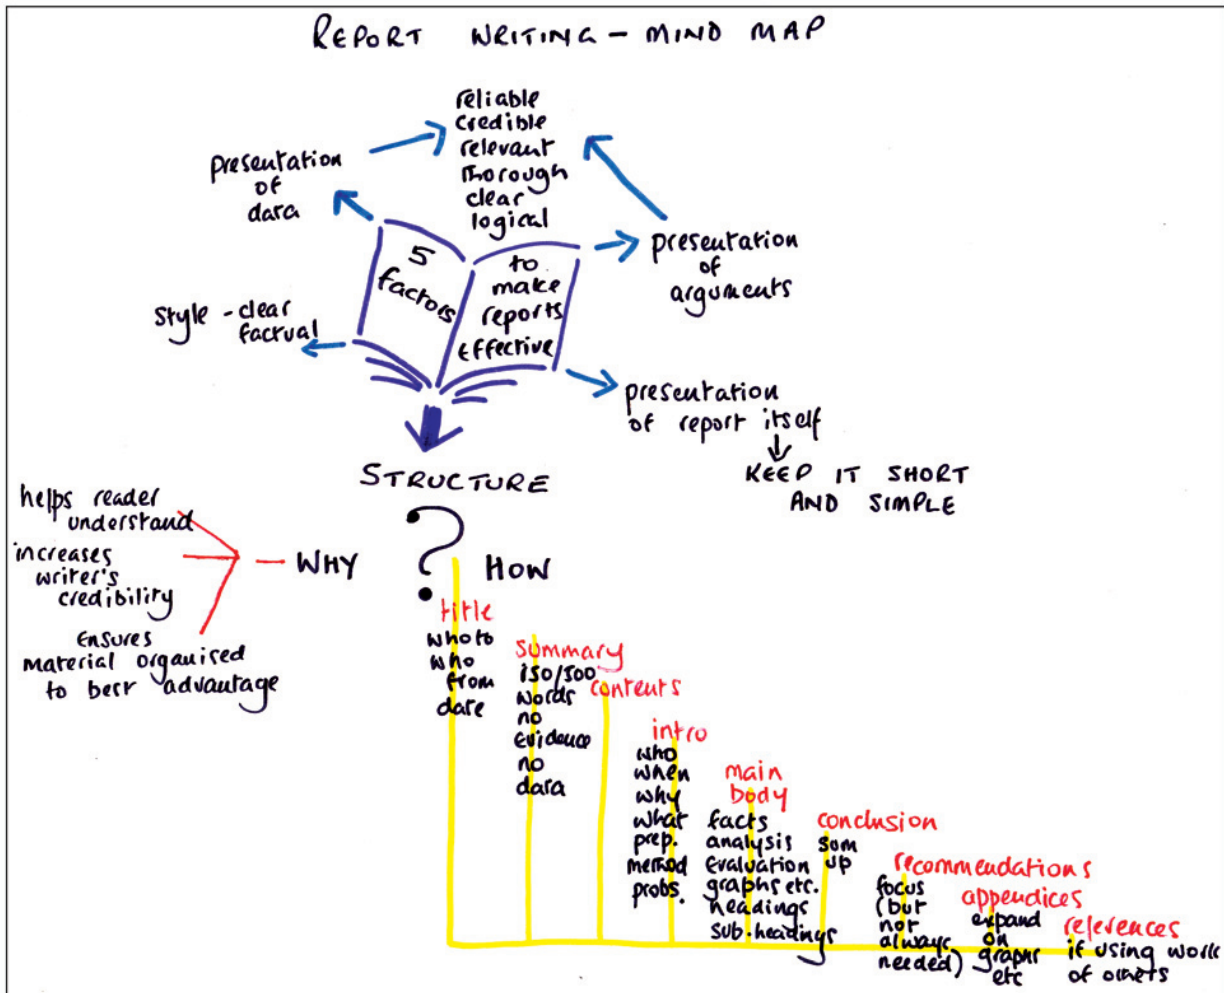 REPORT WRITING – MIND MAP
reliable
credible
relevant
thorough
clear
logical
presentation
of
data
5
factors
to
make
reports
effective
presentation
of
arguments
style - clear
factual
presentation
of report itself
KEEP IT SHORT
AND SIMPLE
STRUCTURE
helps reader
understand
increases
writer's
credibility
ensures
material organised
to best advantage
WHY
?
HOW
title
who to
who
from
date
summary
150/500
words
no
evidence
no
data
contents
intro
who
when
why
what
prep.
method
probs.
main
body
facts
analysis
evaluation
graphs etc.
headings
sub-headings
conclusion
sum
up
recommendations
focus
(but
not
always
needed)
appendices
expand
on
graphs
etc
references
if using work
of others